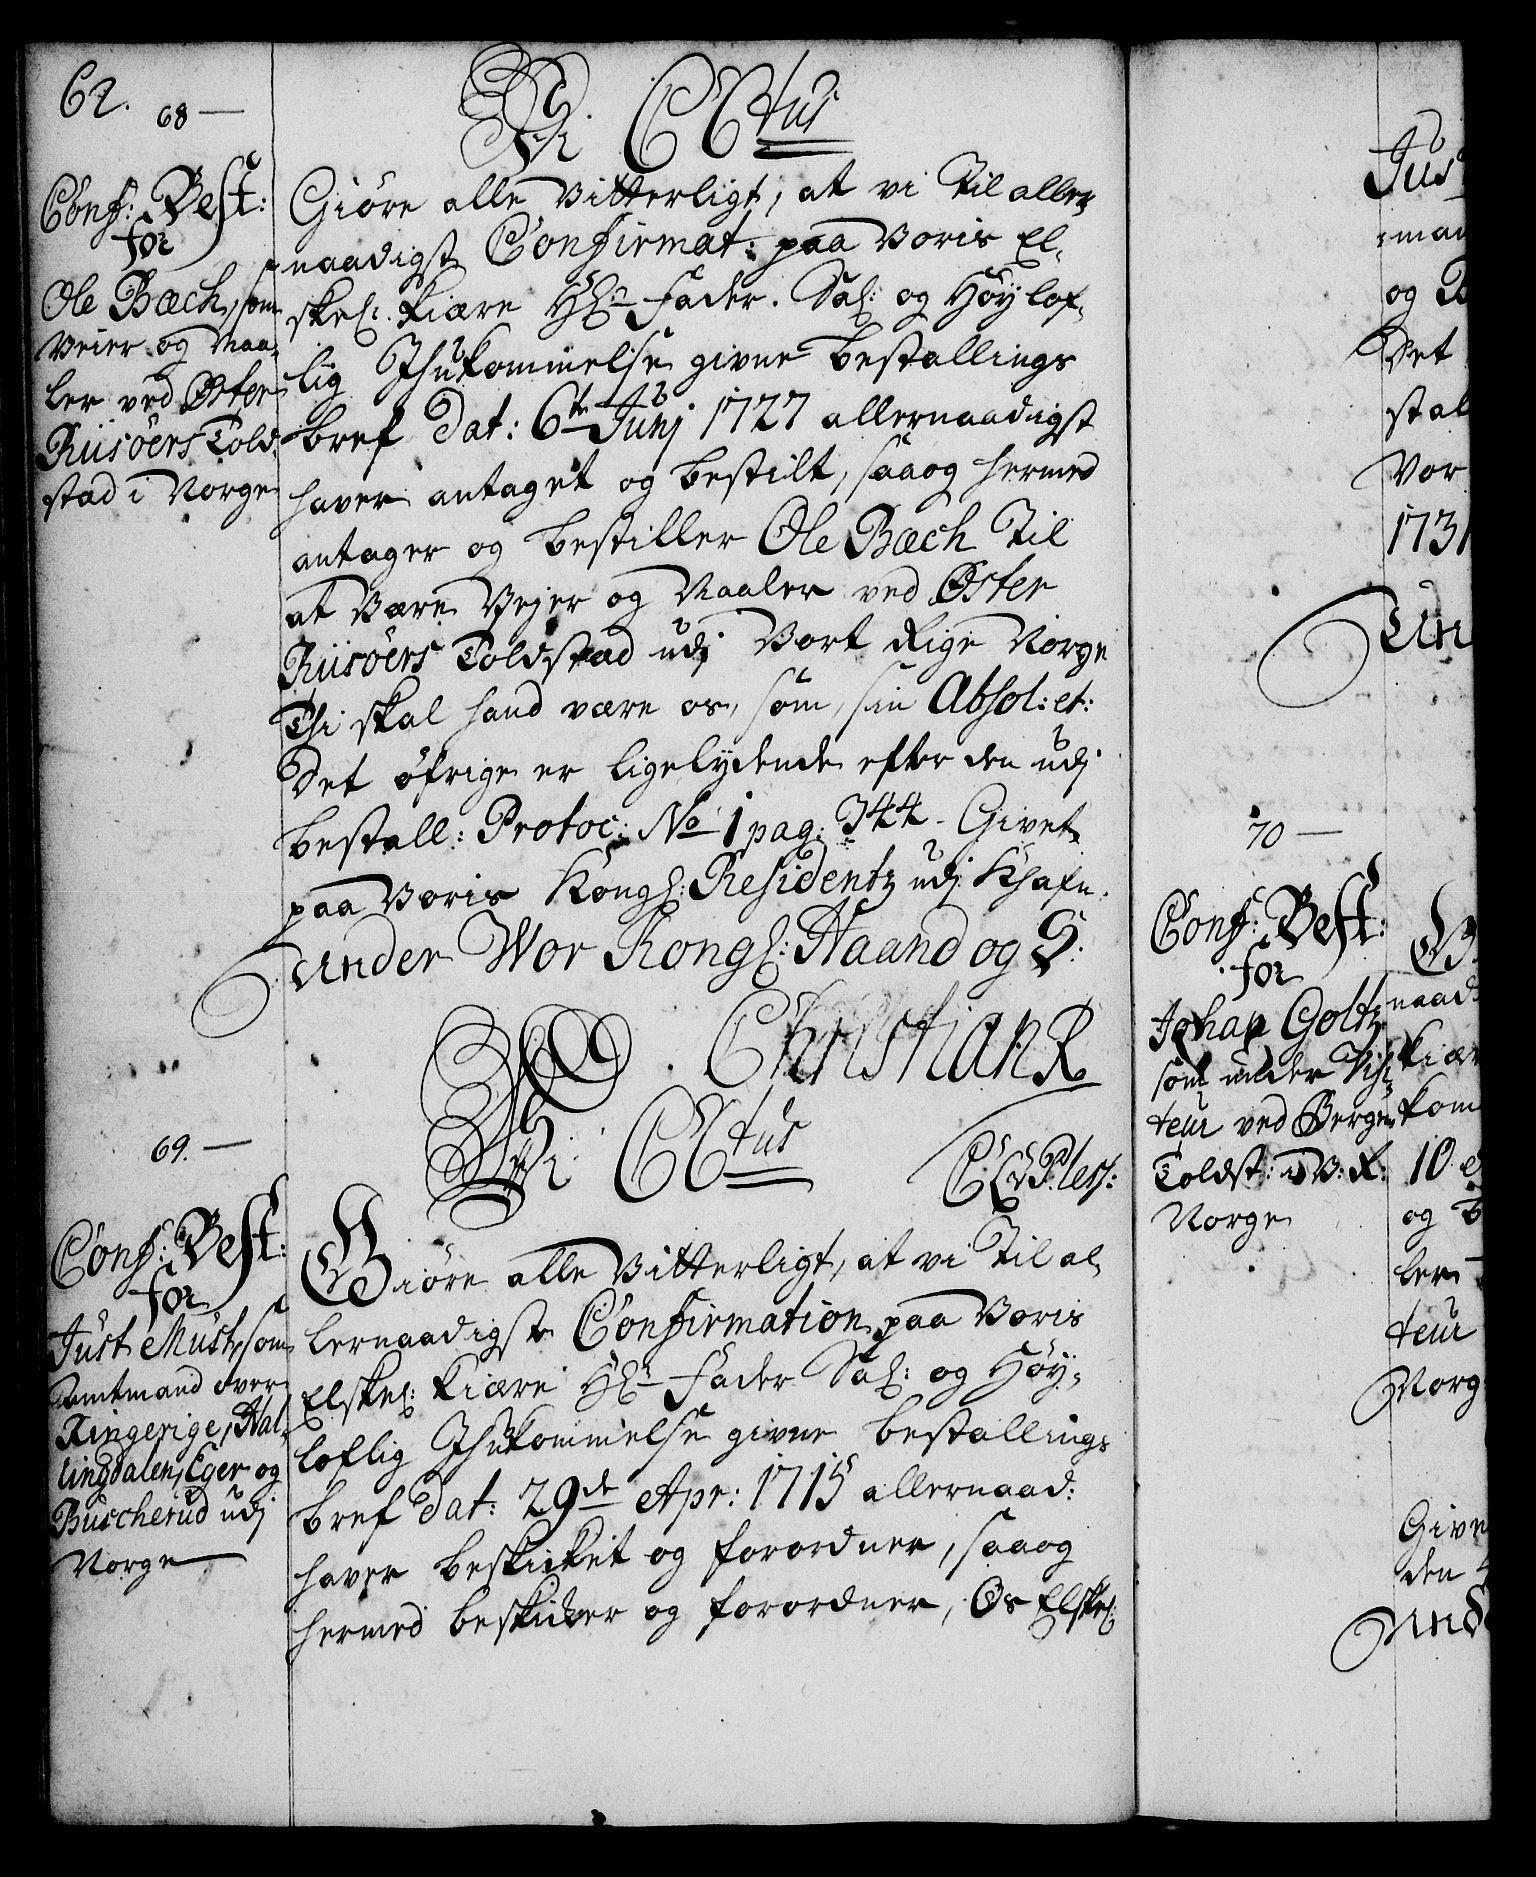 62.
68
Conf: Best:
for
Ole Bæch, som
Veier og Maa-
ler ved Øster
Riisöers Told-
stad i Norge
Vi C C6tus
Giöre alle Vitterligt, at vi Til aller-
naadigst Confirmat: paa Voris El-
skel: kiære Hr Fader. Sal: og Höylof-
lig Ihukommelse givne bestallings
bref Dat: 6te Junj 1727 allernaadigst
haver antaget og bestilt, saa og hermed
antager og bestiller Ole Bæch Til
at Være Vejer og Maaler ved Øster
Riisöers Toldstad udj Vort Rige Norge
Thi skal hand være os, som, sin Absol: et:
Det öfrige er ligelydende efter den udj
bestall: Protoc: No 1 pag: 344 - Givet
paa Voris Kongl: Residentz udj Khafn.
Under Vor Kongl: Haand og S:
Christian R
C A v Pless:
69.
Conf: Best:
for
Just Must, som
Amtmand over
Ringerige, Hal-
lingdalen, Eger og
Buscherud udj
Norge
Vi C C6tus
Giöre alle Vitterligt, at vi Til al-
lernaadigste Confirmation paa Voris
Elskel: kiære Hr Fader Sal: og Höy-
loflig Ihukommelse givne bestallings
bref Dat: 29de Apr: 1715 allernaad:
haver beskicket og forordnet, saa og
hermed beskicker og forordner, Os Elskel:
70
Conf: Best:
for
Johan Goltz
som under Visi-
teur ved Bergens
Toldst: i V: R:
Norge
Jus
man
og B
Det
stal
Vor
1731
Un
naad
kiær
kom
10
og B
ler
teur
Norg
Give
den
Und